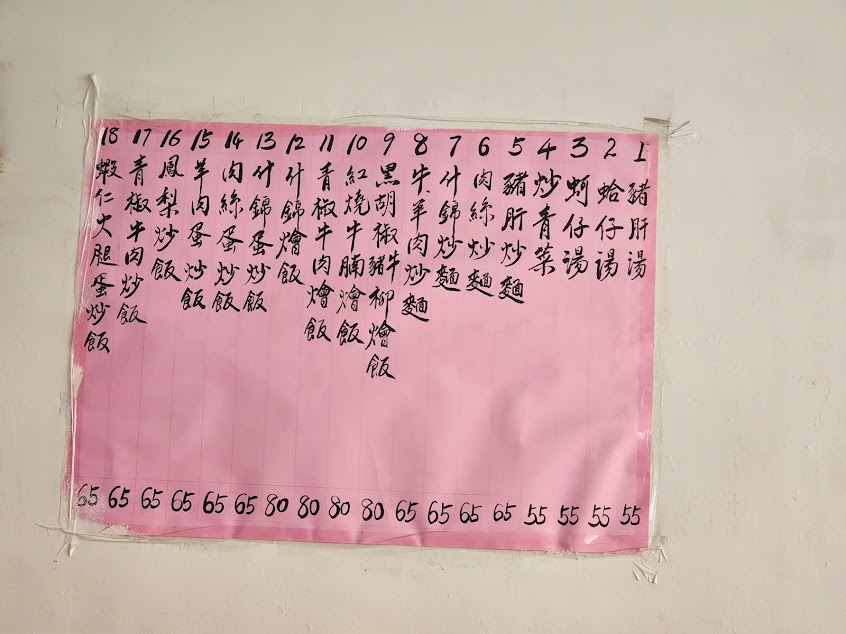 1 豬肝湯 55
2 蛤仔湯 55
3 蚵仔湯 55
4 炒青菜 55
5 豬肝炒麵 65
6 肉絲炒麵 65
7 什錦炒麵 65
8 牛、羊肉炒麵 65
9 黑胡椒牛豬柳燴飯 80
10 紅燒牛腩燴飯 80
11 青椒牛肉燴飯 80
12 什錦燴飯 80
13 什錦蛋炒飯 65
14 肉絲蛋炒飯 65
15 羊肉蛋炒飯 65
16 鳳梨炒飯 65
17 青椒牛肉炒飯 65
18 蝦仁火腿蛋炒飯 65